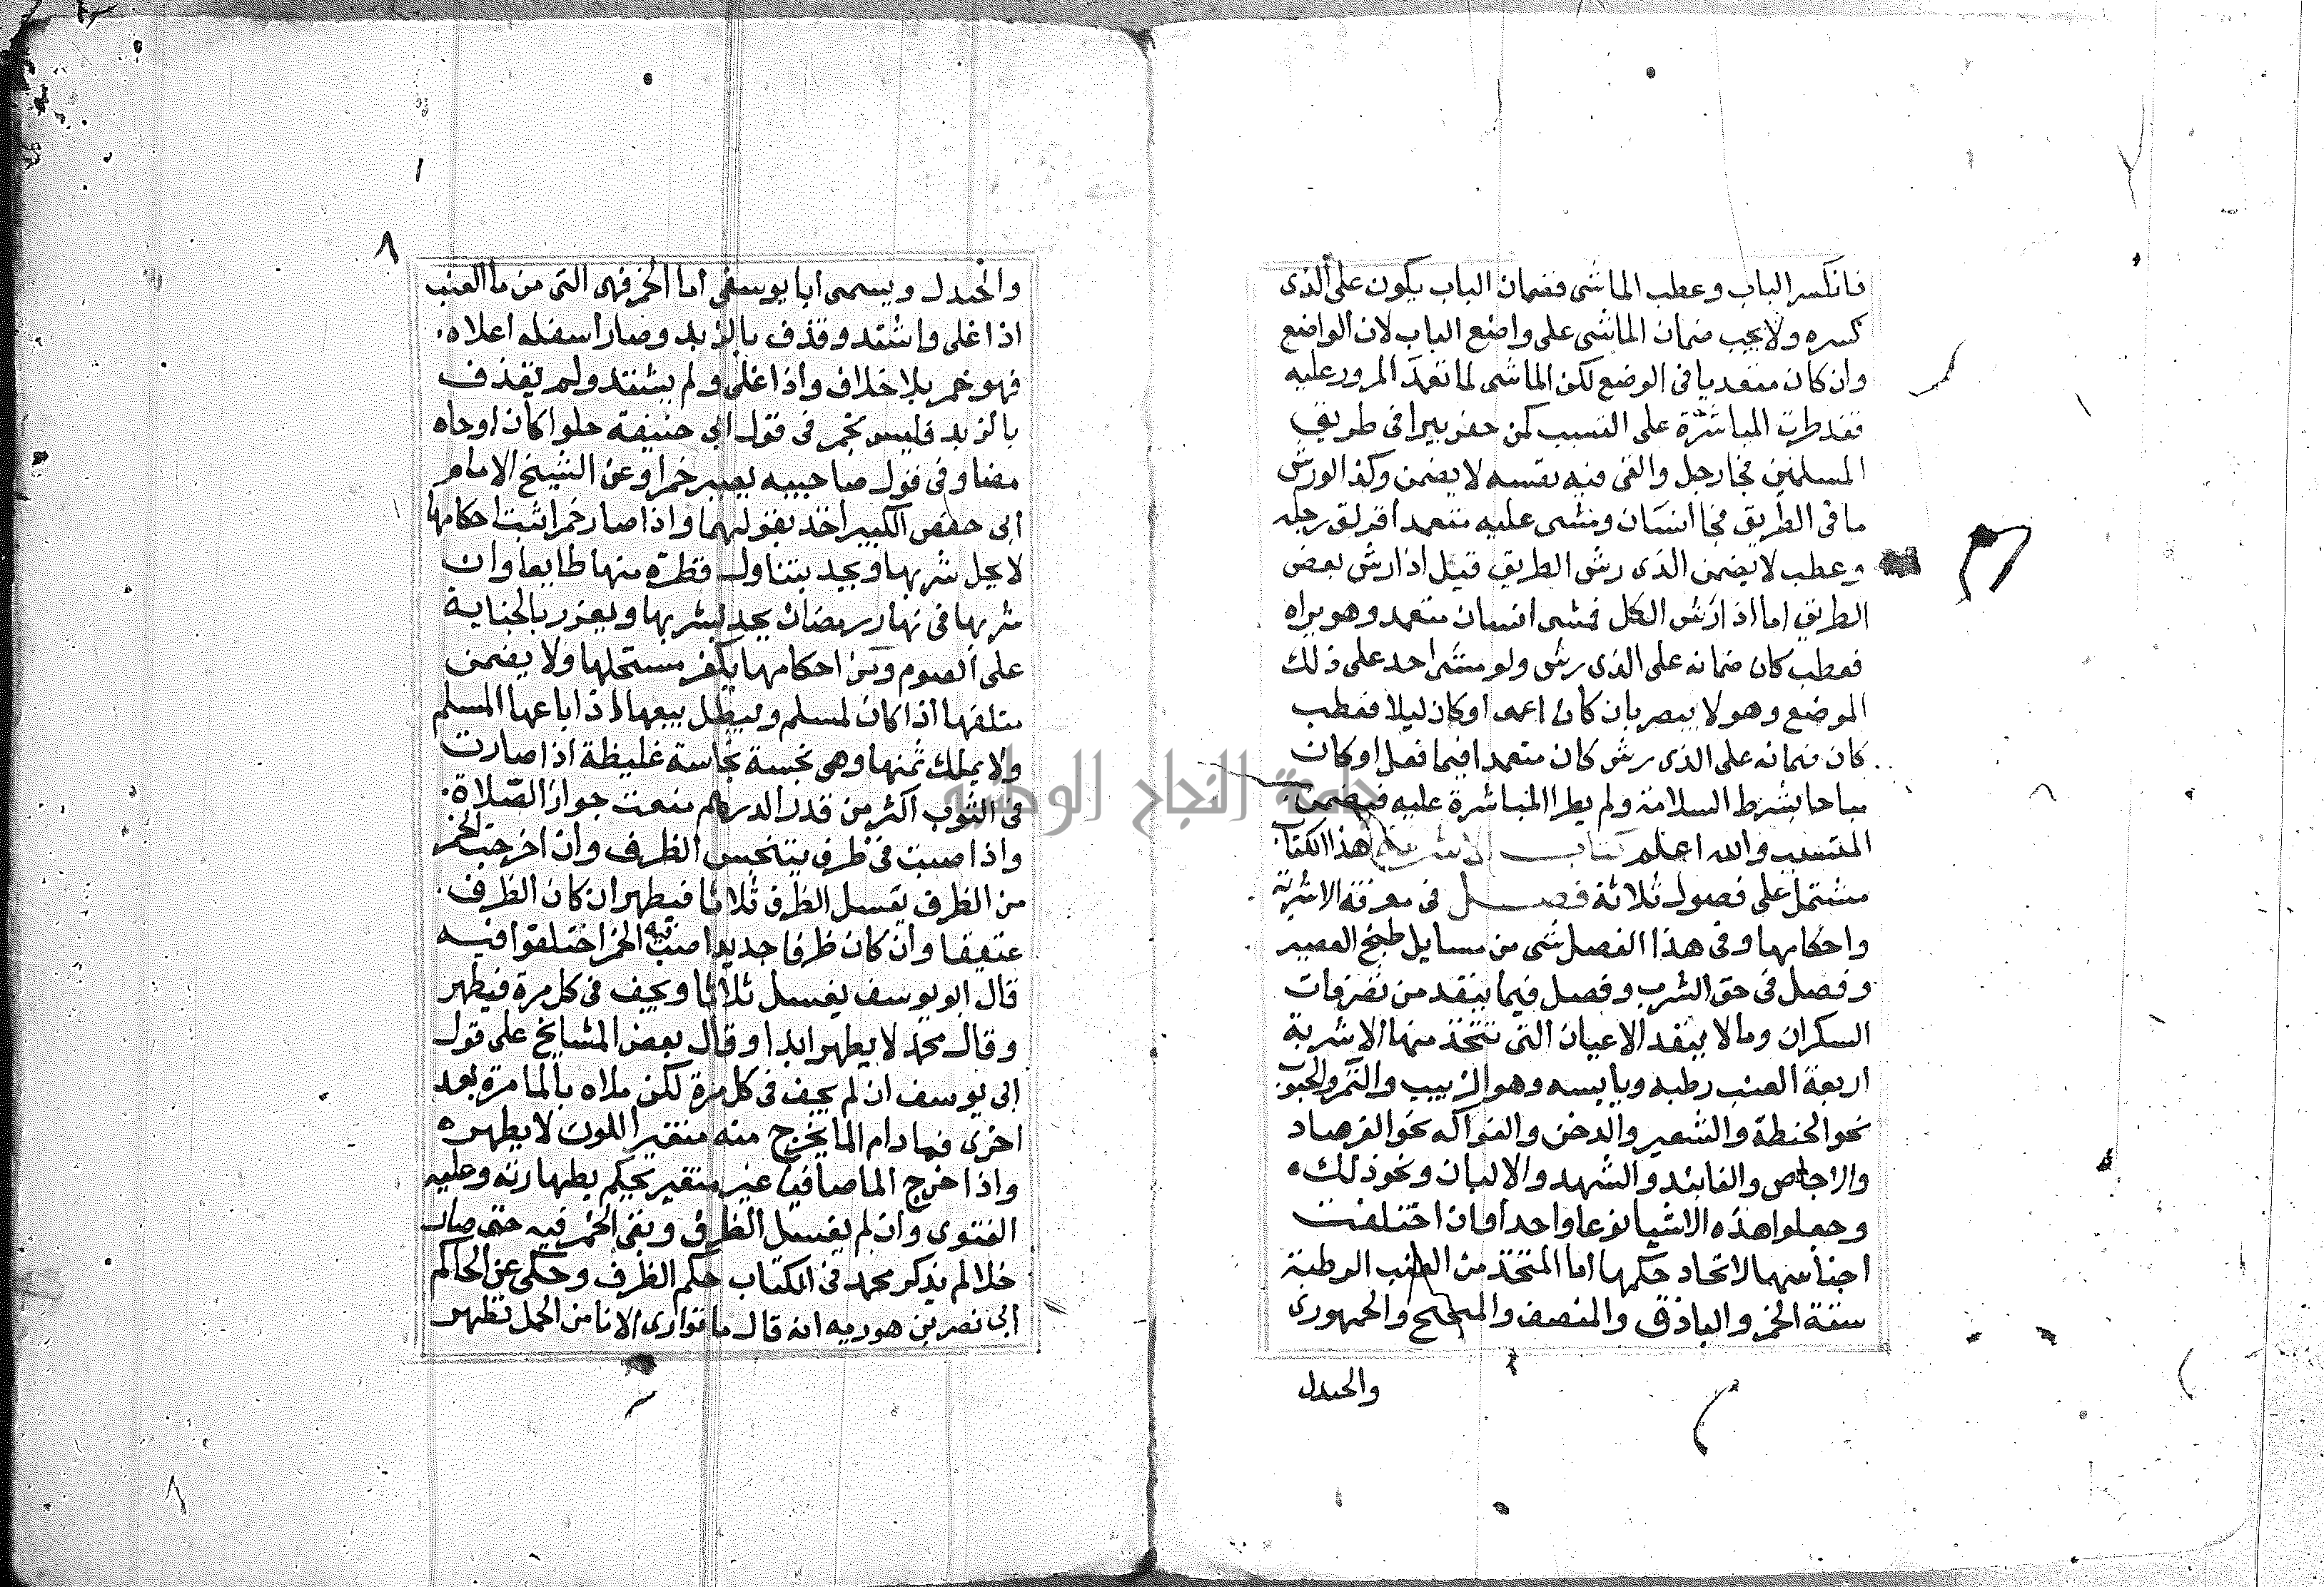 فانكسر الباب وعطب الماشى فضمان الباب يكون على الذى
كسره ولا يجب ضمان الماشى على واضع الباب لان الواضع
وان كان متعديا فى الوضع لكن الماشى لما تعمد المرور عليه
فقد طرات المباشرة على التسبب كمن حفر بيرا فى طريق
المسلمين فجا رجل والقى فيه نفسه لا يضمن وكذا لو رش
ما فى الطريق فجا انسان ومشى عليه متعمدا فزلق رجله
وعطب لا يضمن الذى رش الطريق قيل اذا رش بعض
الطريق اما اذا رش الكل فمشى انسان متعمد وهو يراه
فعطب كان ضمانه على الذى رش ولو مشى احد على ذلك
الموضع وهو لا يبصر بان كان اعمى او كان ليلا فعطب
كان ضمانه على الذى رش كان متعمدا فيما فعل او كان
مباحا بشرط السلامة ولم يطرا المباشرة عليه فيضمن
المتسبب والله اعلم كتاب الاشربة هذا الكتاب
مشتمل على فصول ثلاثة فصل فى معرفة الاشربة
واحكامها وفى هذا الفصل شى من مسايل طبخ العصير
وفصل فى حق الشرب وفصل فيما ينفد من تصرفات
السكران وما لا ينفد الاعيان التى تتخذ منها الاشربة
اربعة العنب رطبه ويابسه وهو الزبيب والتمر والحبوب
نحو الحنطة والشعير والدخن والفواكه نحو الفرصاد
والاجاص والفانيد والشهد والالبان ونحو ذلك
وجعلوا هذه الاشيا نوعا واحدا وان اختلفت
اجناسها لاتحاد حكمها اما المتخذ من العنب الرطبة
ستة الخمر والباذق والمنصف والبختج والجمهورى
والحبدل
٨
والحبدل ويسمى ابا يوسفى اما الخمر فهى التى من ما العنب
اذا غلى واشتد وقذف بالزبد وصار اسفله اعلاه
فهو خمر بلا خلاف واذا غلى ولم يشتد ولم يقذف
بالزبد فليس بخمر فى قول ابى حنيفة حلوا كان او حاه
مضا وفى قول صاحبيه يصير خمرا وعن الشيخ الامام
ابى حفص الكبير اخذ بقولهما واذا صار خمرا ثبت احكامها
لا يحل شربها ويحد بتناول قطرة منها طايعا وان
شربها فى نهار رمضان يحد لشربها ويعزر بالجناية
على الصوم ومن احكامها يكفر مستحلها ولا يضمن
متلفها اذا كان لمسلم ويبطل بيعها اذا باعها المسلم
ولا يملك ثمنها وهى نجسة نجاسة غليظة اذا صارت
فى الثوب اكثر من قدر الدرهم منعت جواز الصلاة
واذا صبت فى ظرف يتنجس الظرف وان اخرجت الخمر
من الظرف يغسل الظرف ثلاثا فيطهر ان كان الظرف
عتيقا وان كان ظرفا جديدا صب فيه الخمر اختلفوا فيه
قال ابو يوسف يغسل ثلاثا ويجف فى كل مرة فيطهر
وقال محمد لا يطهر ابدا وقال بعض المشايخ على قول
ابى يوسف ان لم يجف فى كل مرة لكن ملاه بالما مرة بعد
اخرى فما دام الما يخرج منه متغير اللون لا يطهره
واذا خرج الما صافيا غير متغير يحكم بطهارته وعليه
الفتوى وان لم يغسل الظرف وبقى الخمر فيه حتى صار
خلا لم يذكر محمد فى الكتاب حكم الظرف وحكى عن الحاكم
ابى نصر بن هوريه انه قال ما توارى الانا من الخل تطهر
٨
جامعة النجاح الوطنية